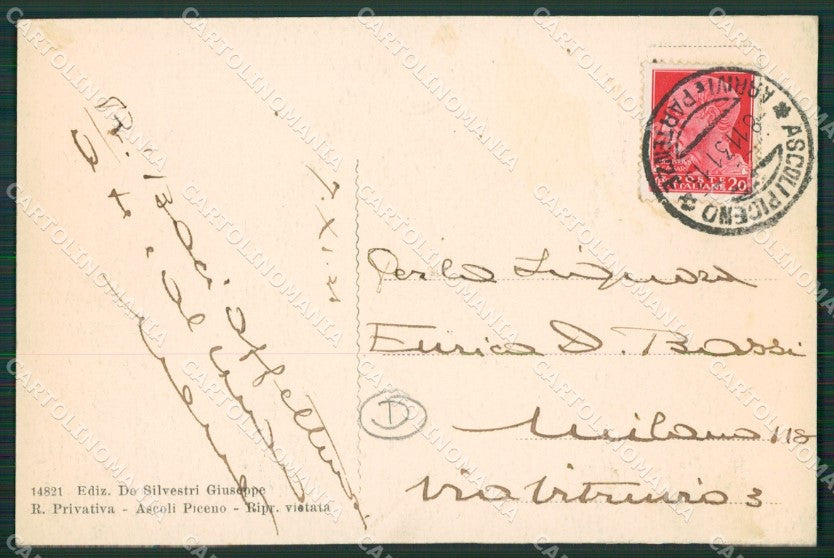 ASCOLI PICENO
ARRIVI E PARTENZE
8.11.31
POSTE
ITALIANE 20
7.XI.31
Baci affettuosi
a te e al
Gentila Signora
Enrica D. Bassi
Milano 118
Via Vitruvio 3
D
14821 Ediz. De Silvestri Giuseppe
R. Privativa - Ascoli Piceno - Ripr. vietata
CARTOLINOMANIA